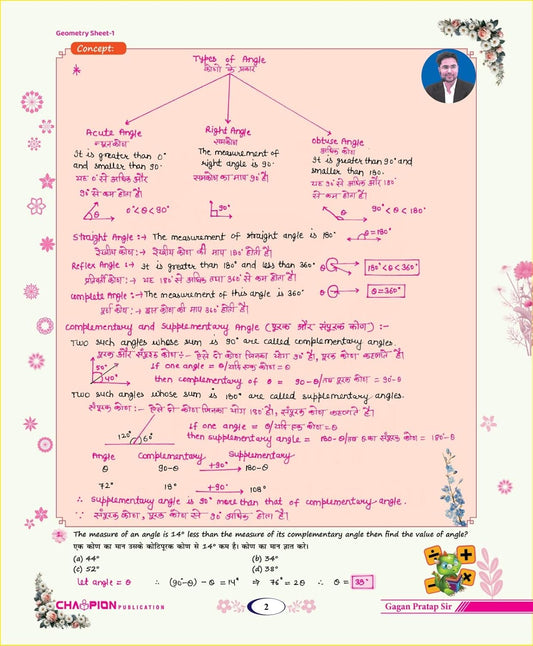 Geometry Sheet-1
Concept:
* Types of Angle
कोणों के प्रकार
Acute Angle
न्यूनकोण
It is greater than 0°
and smaller than 90.
यह 0° से अधिक और
90° से कम होता है।
θ 0°<θ<90°
Right Angle
समकोण
The measurement of
right angle is 90.
समकोण का माप 90° है।
90°
Obtuse Angle
अधिक कोण
It is greater than 90° and
smaller than 180.
यह 90° से अधिक और 180°
से कम होता है।
θ 90° < θ < 180°
Straight Angle :→ The measurement of straight angle is 180° θ=180°
रेखीय कोण :→ रेखीय कोण की माप 180° होती है।
Reflex Angle :→ It is greater than 180° and less than 360° θ 180°<θ<360°
:→ यह 180° से अधिक तथा 360° से कम होता है।
Complete Angle :→ The measurement of this angle is 360° θ θ=360°
पूर्ण कोण :→ इस कोण की माप 360° होती है।
Complementary and Supplementary Angle (पूरक और संपूरक कोण) :-
Two such angles whose sum is 90° are called complementary angles.
पूरक और संपूरक कोण :- ऐसे दो कोण जिनका योग 90° है, पूरक कोण कहलाते हैं।
50° 40°
if one angle = θ/यदि एक कोण = θ
then complementary of θ = 90-θ/तब पूरक कोण = 90-θ
Two such angles whose sum is 180° are called supplementary angles.
संपूरक कोण :- ऐसे दो कोण जिनका योग 180° है, संपूरक कोण कहलाते हैं।
120° 60°
if one angle = θ/यदि एक कोण = θ
then supplementary angle = 180-θ/तब θ का संपूरक कोण = 180-θ
Angle Complementary Supplementary
θ 90-θ +90° 180-θ
72° 18° +90° 108°
∴ Supplementary angle is 90° more than that of complementary angle.
∵ संपूरक कोण, पूरक कोण से 90° अधिक होता है।
1. The measure of an angle is 14° less than the measure of its complementary angle then find the value of angle?
एक कोण का मान उसके कोटिपूरक कोण से 14° कम है। कोण का मान ज्ञात करें।
(a) 44° (b) 34°
(c) 52° (d) 38°
let angle = θ ∴ (90-θ) - θ = 14° ⇒ 76° = 2θ ∴ θ = 38°
CHAMPION PUBLICATION
2
Gagan Pratap Sir